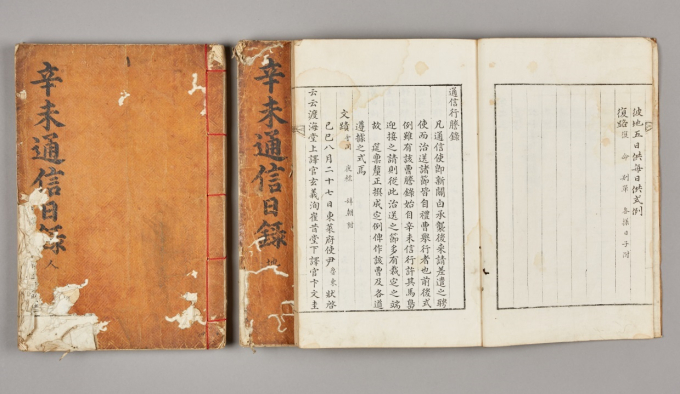 辛未通信日錄
人
辛未通信日錄
地
彼地五日供每日供式例
復路
通信行謄錄
凡通信使卽新關白承襲後來請差遣之聘
使而治送諸節皆自禮曹舉行者也前後式
例雖有該曹謄錄始自辛未信行許其馬島
迎接之請則從此治送之節多有裁定之端
故筵稟釐正撰成定例俾作該曹及各道
遵據之式焉
文蹟
己巳八月二十七日東萊府使尹魯東狀啓
云云渡海堂上譯官玄義洵崔昔堂下譯官卞文圭